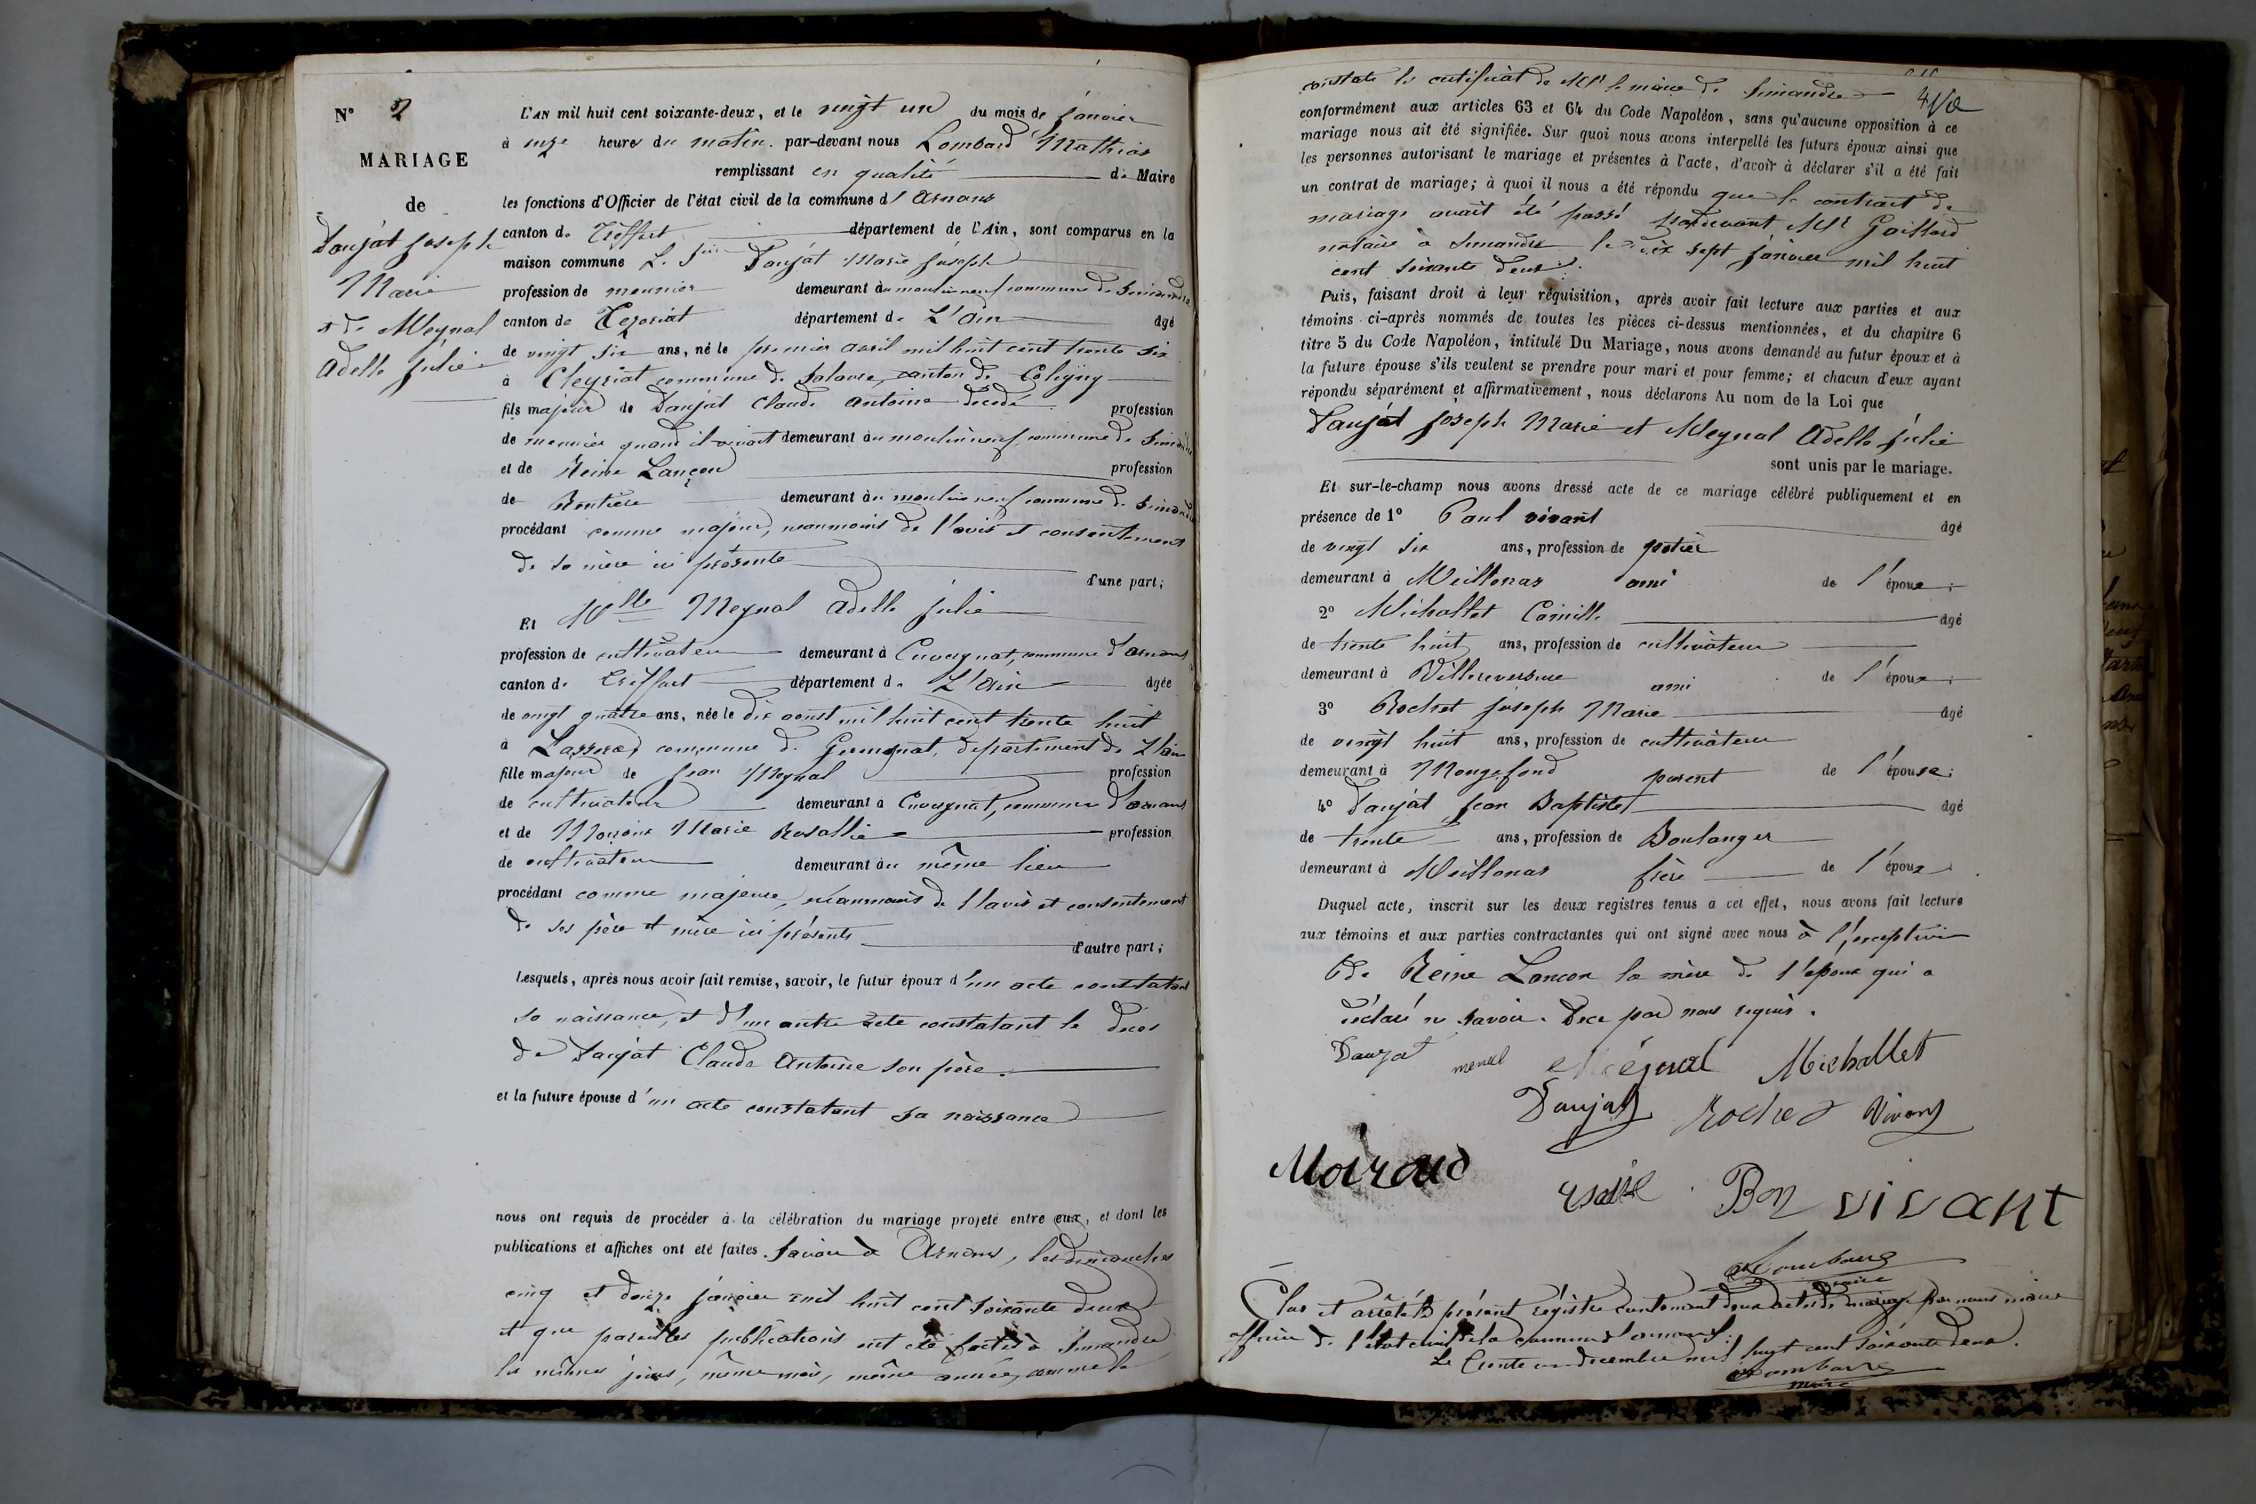 N° 2
MARIAGE
de
Daujat Joseph
Marie
et de Meynal
Adelle Julie
L'AN mil huit cent soixante-deux, et le vingt un du mois de janvier
à onze heures du matin. par-devant nous Lombard Mathias
remplissant en qualité de Maire
les fonctions d'Officier de l'état civil de la commune d'Arnans
canton de Treffort département de l'Ain, sont comparus en la
maison commune Daujat Marie Joseph
profession de meunier demeurant au moulin neuf commune de Simandre
canton de Ceyzeriat département de L'Ain âgé
de vingt six ans, né le premier avril mil huit cent trente six
à Cleyriat commune de Salavre, canton de Coligny
fils majeur de Daujat Claude Antoine décédé profession
de meunier quand il vivait demeurant au moulin neuf commune de Simandre
et de Reine Lançon profession
de Rentière demeurant au moulin neuf commune de Simandre
procédant comme majeur, neanmoins de l'avis et consentement
de sa mère ici présente
d'une part;
Et Mlle Meynal Adelle Julie
profession de cultivateur demeurant à Cuvergnat, commune d'arnans
canton de Treffort département de L'Ain âgée
de vingt quatre ans, née le dix aoust mil huit cent trente huit
à commune de Germagnat, departement de L'ain
fille majeure de Jean Meynal profession
de cultivateur demeurant à Cuvergnat, commune d'arnans
et de Marie Rosallie profession
de cultivateur demeurant au même lieu
procédant comme majeure, néanmoins de l'avis et consentement
de ses père et mère ici présents
d'autre part;
Lesquels, après nous avoir fait remise, savoir, le futur époux d'un acte constatant
sa naissance, et d'un autre acte constatant le décès
de Daujat Claude Antoine son père.
et la future épouse d'un acte constatant sa naissance
nous ont requis de procéder à la célébration du mariage projeté entre eux, et dont les
publications et affiches ont été faites savoir à Arnans, les dimanches
cinq et douze janvier mil huit cent soixante deux
et que pareilles publications ont été faites à Simandre
les mêmes jours, même mois, même année, comme le
constate le certificat de Mr le maire de Simandre
conformément aux articles 63 et 64 du Code Napoléon, sans qu'aucune opposition à ce
mariage nous ait été signifiée. Sur quoi nous avons interpellé les futurs époux ainsi que
les personnes autorisant le mariage et présentes à l'acte, d'avoir à déclarer s'il a été fait
un contrat de mariage; à quoi il nous a été répondu que le contrait de
mariage avait été passé pardevant Mr Gaillard
notaire à Simandre le dix sept janvier mil huit
cent soixante deux.
Puis, faisant droit à leur réquisition, après avoir fait lecture aux parties et aux
témoins ci-après nommés de toutes les pièces ci-dessus mentionnées, et du chapitre 6
titre 5 du Code Napoléon, intitulé Du Mariage, nous avons demandé au futur époux et à
la future épouse s'ils veulent se prendre pour mari et pour femme; et chacun d'eux ayant
répondu séparément et affirmativement, nous déclarons Au nom de la Loi que
Daujat Joseph Marie et Meynal Adelle Julie
sont unis par le mariage.
Et sur-le-champ nous avons dressé acte de ce mariage célébré publiquement et en
présence de 1° Paul vivant âgé
de vingt six ans, profession de potier
demeurant à Meillonas ami de l'époux;
2° Michallet Camille âgé
de trente huit ans, profession de cultivateur
demeurant à Villereversure ami de l'époux;
3° Rochet Joseph Marie âgé
de vingt huit ans, profession de cultivateur
demeurant à Mongefond parent de l'épouse;
4° Daujat Jean Baptiste âgé
de trente ans, profession de Boulanger
demeurant à Meillonas frère de l'époux
Duquel acte, inscrit sur les deux registres tenus à cet effet, nous avons fait lecture
aux témoins et aux parties contractantes qui ont signé avec nous à l'exception
de Reine Lancon la mère de l'époux qui a
déclaré ne savoir. De ce par nous requis.
Daujat Michallet
Daujat Rochet Vivant
Moiroud
Bon vivant
Lombard
maire
Clos et arrêté le présent régistre contenant deux actes de mariage par nous maire
officier de l'état civil de la commune d'arnans.
Le trente un decembre mil huit cent soixante deux.
Lombard
maire